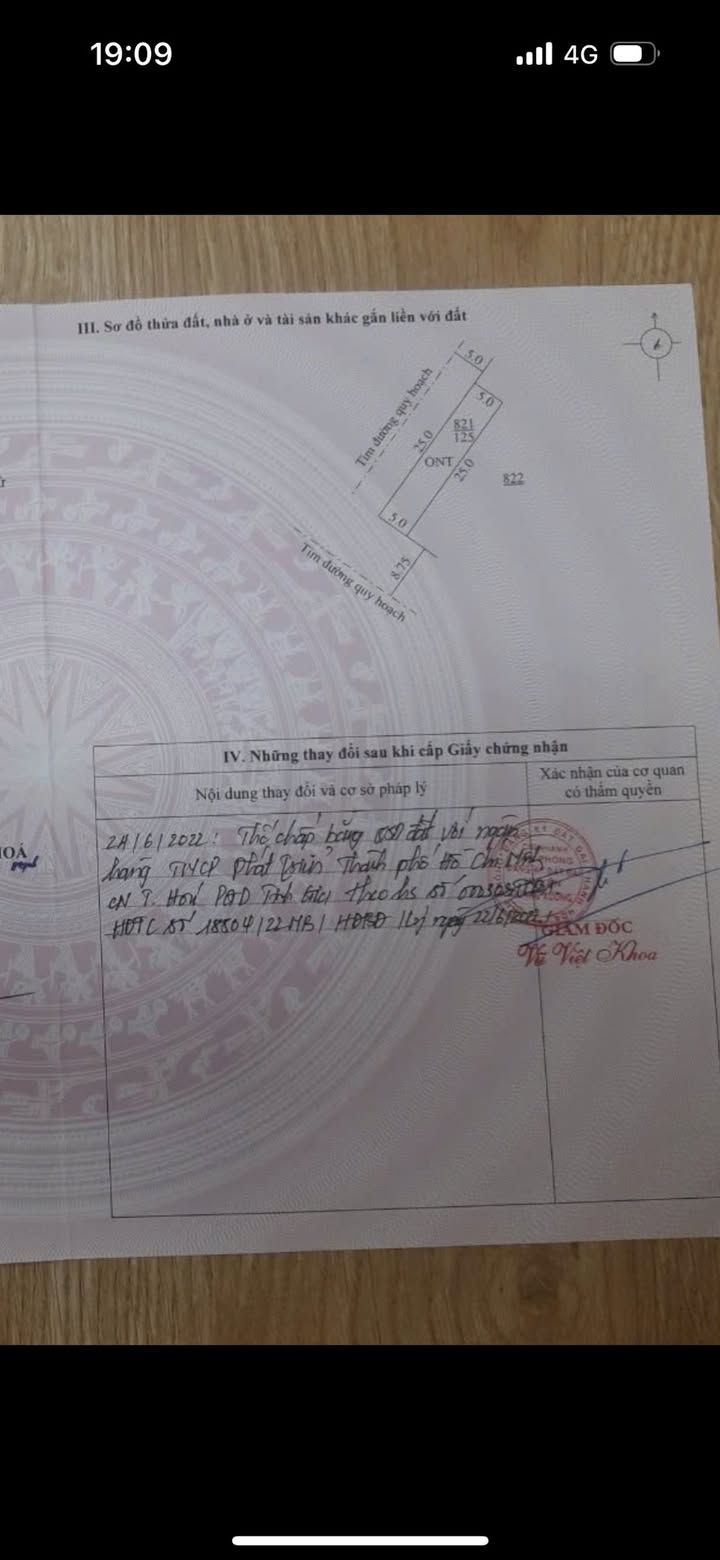 19:09
4G
III. Sơ đồ thửa đất, nhà ở và tài sản khác gắn liền với đất
5.0
Tim đường quy hoạch
5.0
821
125
25.0
ONT
25.0
822
5.0
8.75
Tim đường quy hoạch
IV. Những thay đổi sau khi cấp Giấy chứng nhận
Nội dung thay đổi và cơ sở pháp lý
Xác nhận của cơ quan
có thẩm quyền
HOÁ
24/6/2022: Thế chấp bằng QSD đất với ngân
hàng TMCP Phát triển Thành phố Hồ Chí Minh
CN T. Hoá PGD Tĩnh Gia theo hs số
HĐTC số 18504/22MB/HĐBĐ ngày 22/6/2022
GIÁM ĐỐC
Vũ Việt Khoa